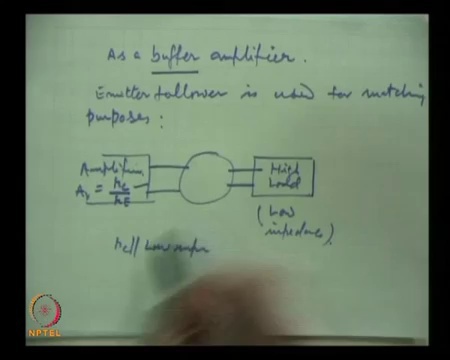 As a buffer amplifier.
Emitter follower is used for matching
purposes:
Amplifier
A_v = R_C / R_E
High
Load
(Low
impedance)
R_C || Low
NPTEL